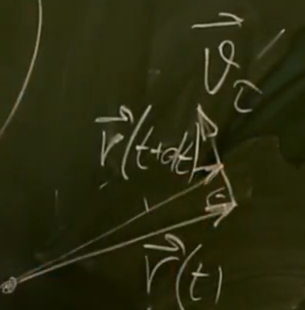 v⃗_τ
r⃗(t+dt)
r⃗(t)